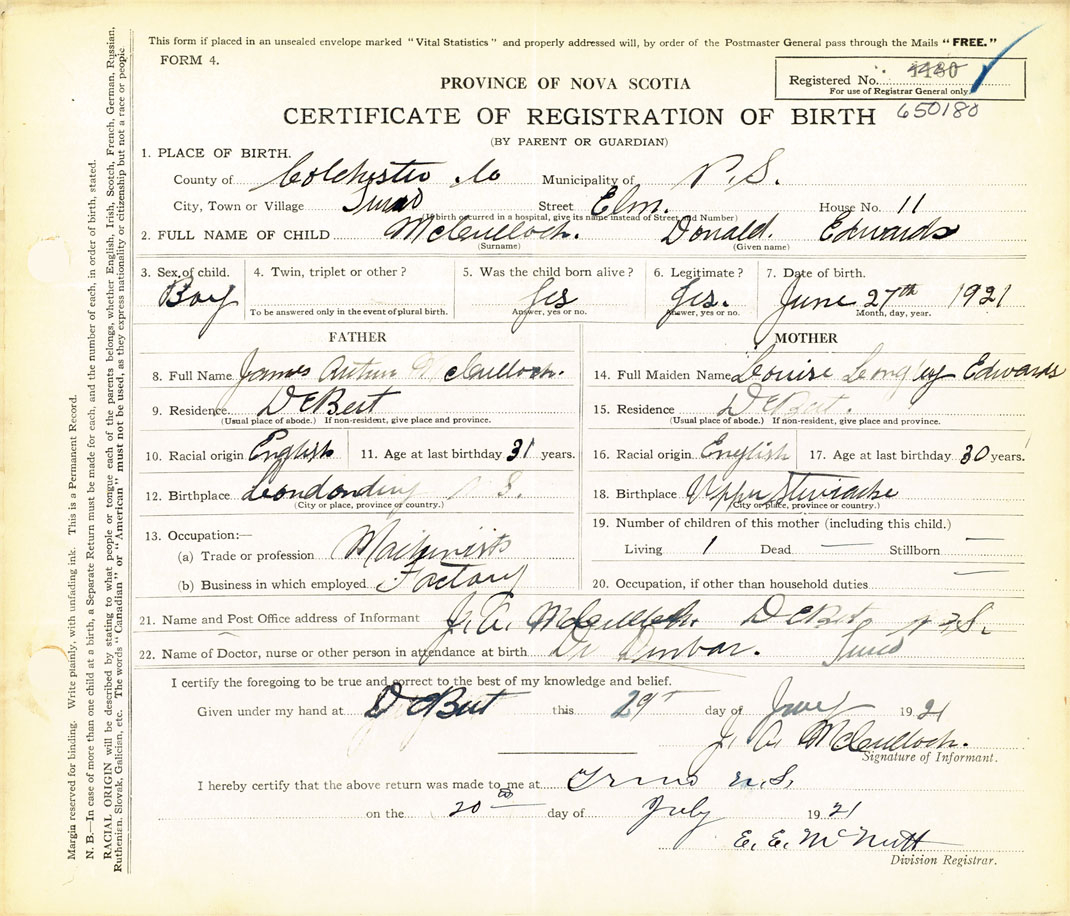 This form if placed in an unsealed envelope marked "Vital Statistics" and properly addressed will, by order of the Postmaster General pass through the Mails "FREE."
FORM 4.
Registered No. 4480
For use of Registrar General only.
650180
PROVINCE OF NOVA SCOTIA
CERTIFICATE OF REGISTRATION OF BIRTH
(BY PARENT OR GUARDIAN)
1. PLACE OF BIRTH.
County of Colchester Co Municipality of N.S.
City, Town or Village Truro Street Elm. House No. 11
(If birth occurred in a hospital, give its name instead of Street and Number)
2. FULL NAME OF CHILD McCulloch. Donald. Edwards
(Surname) (Given name)
3. Sex of child. 4. Twin, triplet or other? 5. Was the child born alive? 6. Legitimate? 7. Date of birth.
Boy Yes Yes. June 27th 1921
To be answered only in the event of plural birth. Answer, yes or no. Answer, yes or no. Month, day, year.
FATHER
8. Full Name James Arthur McCulloch.
9. Residence DeBert
(Usual place of abode.) If non-resident, give place and province.
10. Racial origin English 11. Age at last birthday 31 years.
12. Birthplace Londonderry N.S.
(City or place, province or country.)
13. Occupation:—
(a) Trade or profession Machinists
(b) Business in which employed Factory
MOTHER
14. Full Maiden Name Louise Longley Edwards
15. Residence DeBert.
(Usual place of abode.) If non-resident, give place and province.
16. Racial origin English 17. Age at last birthday 30 years.
18. Birthplace Upper Stewiacke
(City or place, province or country.)
19. Number of children of this mother (including this child.)
Living 1 Dead — Stillborn —
20. Occupation, if other than household duties —
21. Name and Post Office address of Informant J. A. McCulloch. DeBert N.S.
22. Name of Doctor, nurse or other person in attendance at birth Dr Dunbar. Truro
I certify the foregoing to be true and correct to the best of my knowledge and belief.
Given under my hand at DeBert this 29th day of 1921
J. A. McCulloch.
Signature of Informant.
I hereby certify that the above return was made to me at Truro N.S.
on the 20th day of July 1921
E. E. McNutt
Division Registrar.
Margin reserved for binding. Write plainly, with unfading ink. This is a Permanent Record.
N. B.—In case of more than one child at a birth, a Separate Return must be made for each, and the number of each, in order of birth, stated.
RACIAL ORIGIN will be described by stating to what people or tongue each of the parents belongs, whether English, Irish, Scotch, French, German, Russian,
Ruthenian, Slovak, Galician, etc. The words "Canadian" or "American" must not be used, as they express nationality or citizenship but not a race or people.